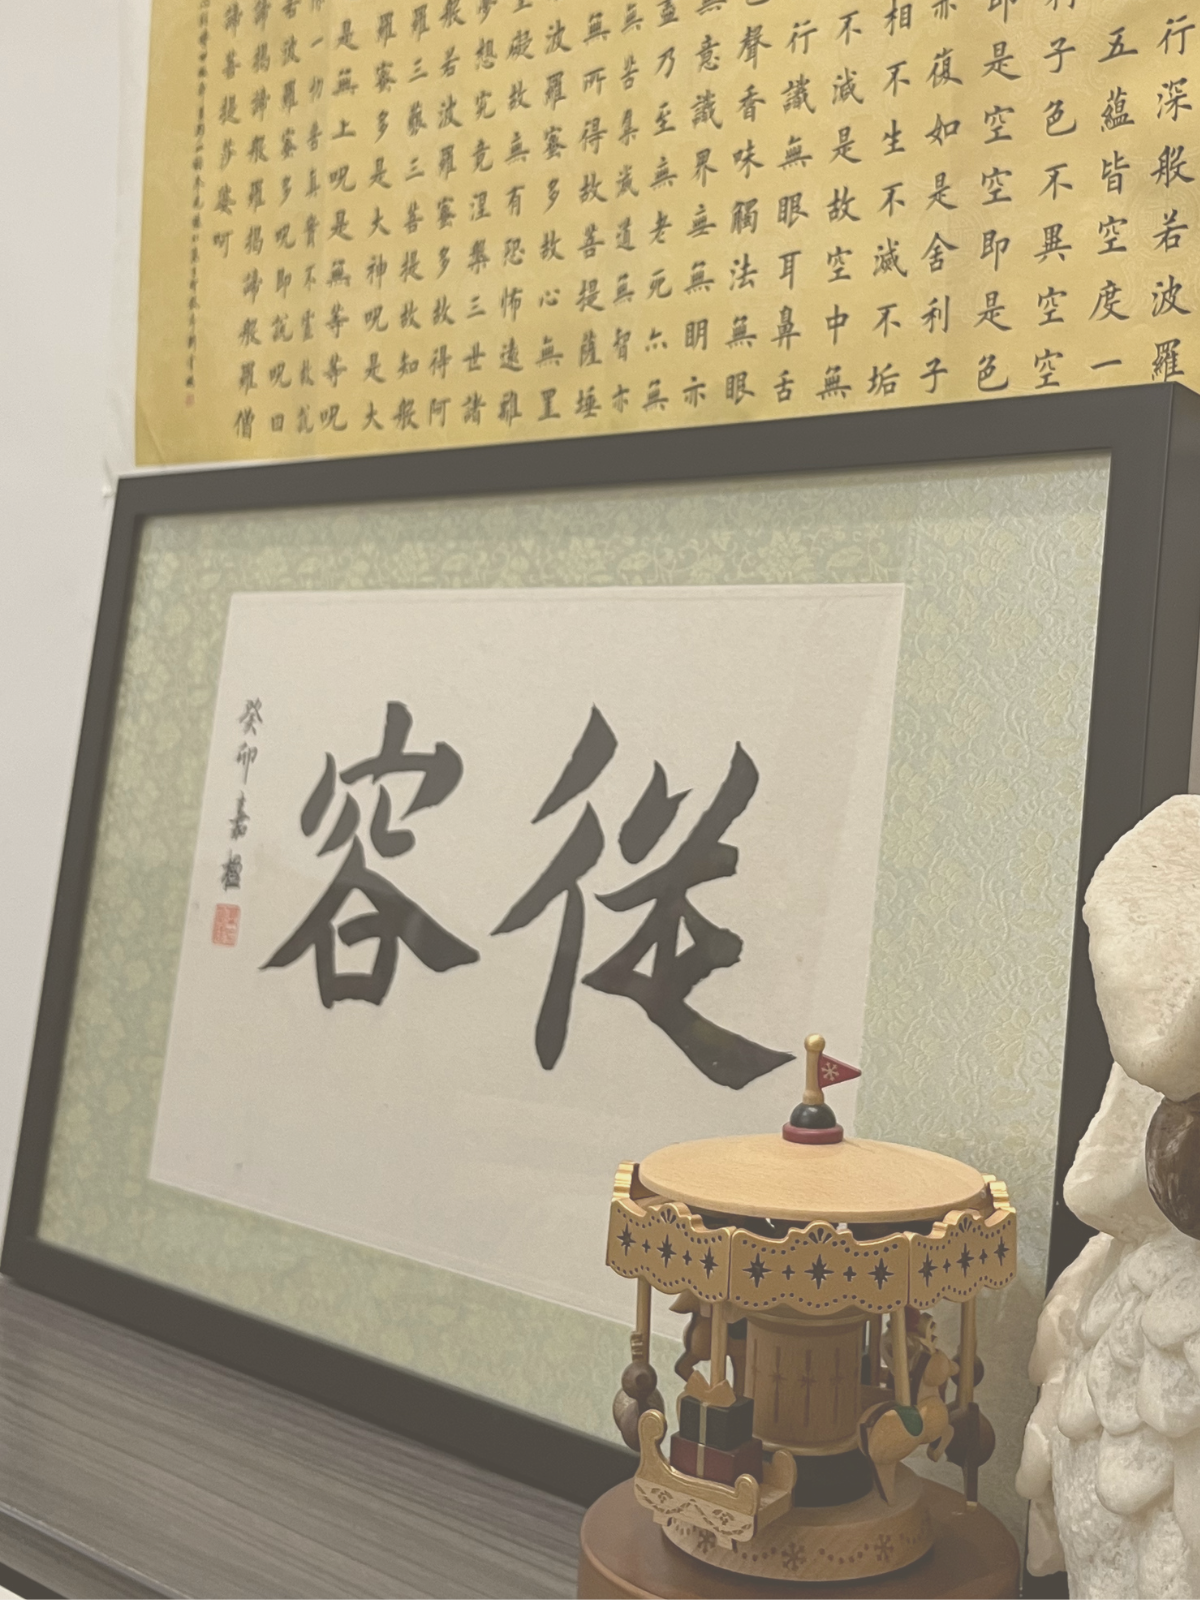 行深般若波羅
五蘊皆空度一
子色不異空空
即是空空即是色
亦復如是舍利子
相不生不滅不垢
不減是故空中無
行識無眼耳鼻舌
聲香味觸法無眼
無意識界無無明亦
盡乃至無老死亦無
無苦集滅道無智亦
無所得故菩提薩埵
波羅蜜多故心無罣
礙故無有恐怖遠離
夢想究竟涅槃三世諸
般若波羅蜜多故得阿
羅三藐三菩提故知般
羅蜜多是大神呪是大
是無上呪是無等等呪
一切苦真實不虛故說
若波羅蜜多呪即說呪曰
諦揭諦般羅揭諦般羅僧
諦菩提莎婆呵
從容
癸卯嘉